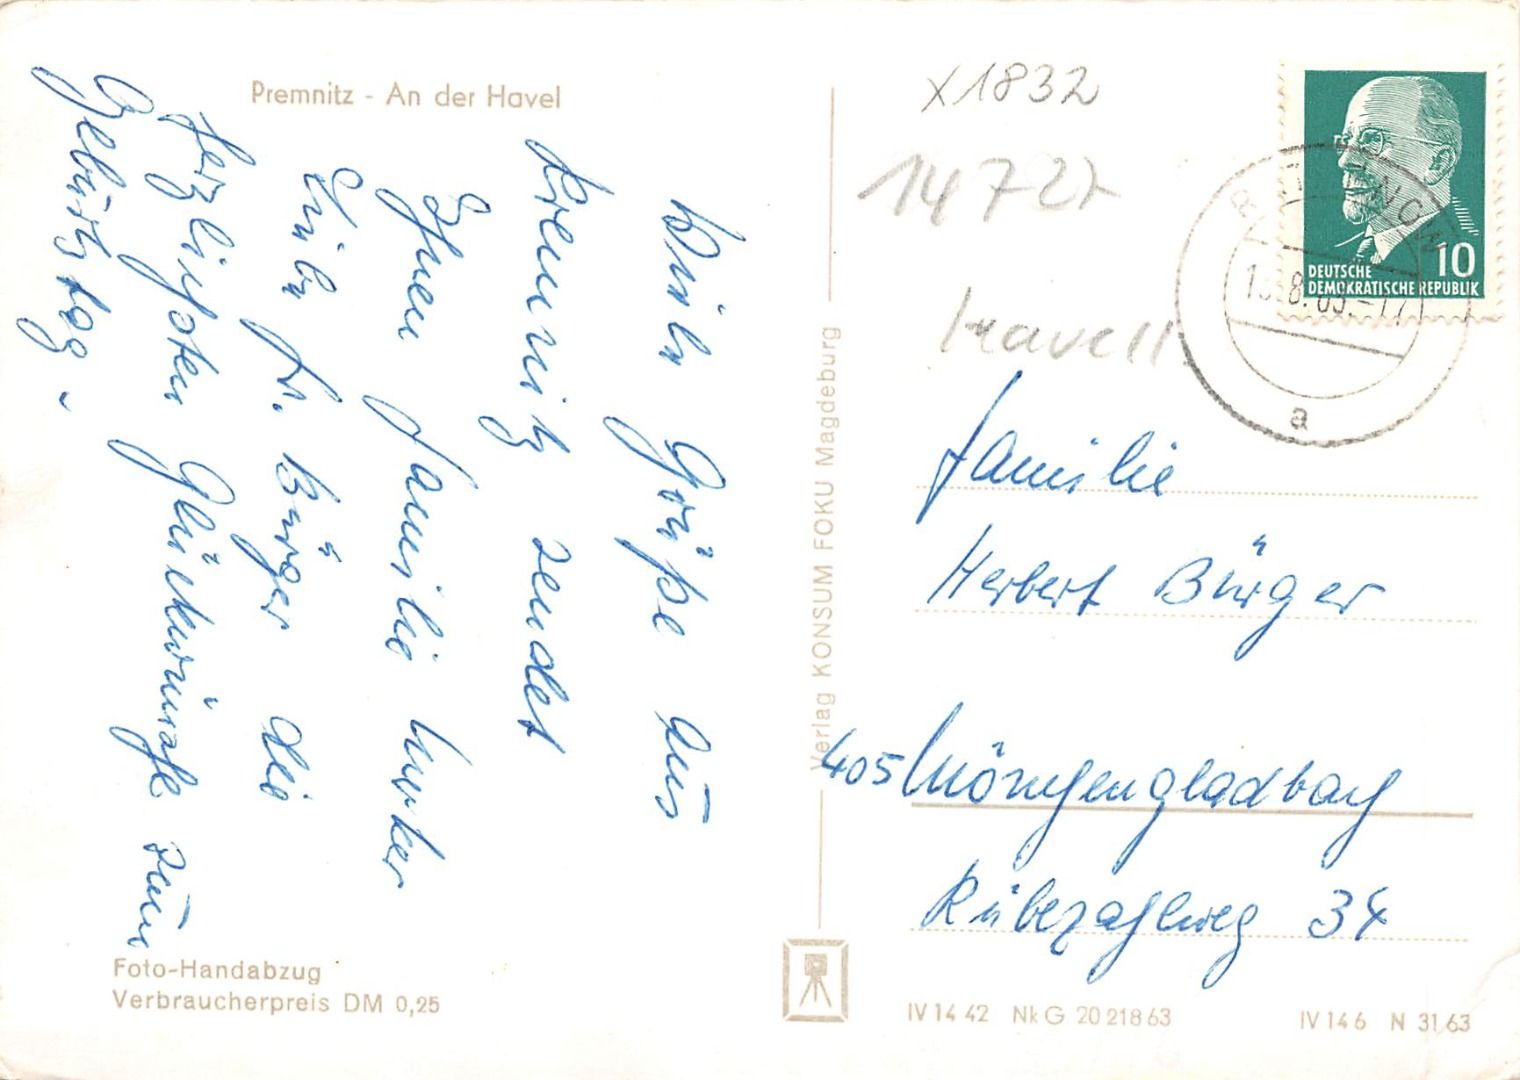 Premnitz - An der Havel
Viele Grüße aus
Premnitz sendet
Ihnen Familie
Liebe Fr. Bürger die
herzlichsten Glückwünsche zum
Geburtstag.
Foto-Handabzug
Verbraucherpreis DM 0,25
Verlag KONSUM FOKU Magdeburg
x1832
14727
Havell
DEUTSCHE
DEMOKRATISCHE REPUBLIK
10
RATHENOW
a
Familie
Herbert Bürger
405 Mönchengladbach
Rübezahlweg 34
IV 14 42 NkG 20 218 63
IV 14 6 N 31 63